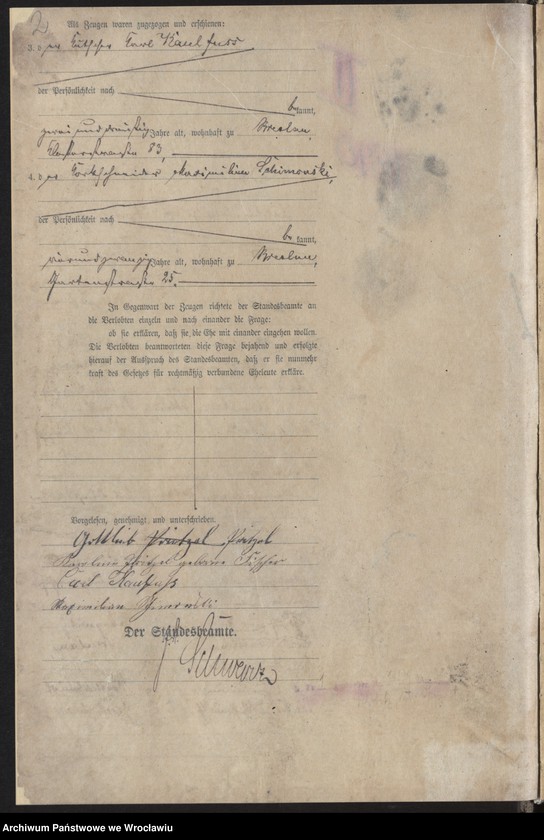 2
Als Zeugen waren zugezogen und erschienen:
3. der Kutscher Carl Kaulfuss
der Persönlichkeit nach
be kannt,
zwei und dreißig Jahre alt, wohnhaft zu Breslau,
Klosterstrasse 83,
4. der Korkschneider Maximilian
der Persönlichkeit nach
be kannt,
vierundzwanzig Jahre alt, wohnhaft zu Breslau,
Gartenstrasse 25.
In Gegenwart der Zeugen richtete der Standesbeamte an
die Verlobten einzeln und nach einander die Frage:
ob sie erklären, daß sie die Ehe mit einander eingehen wollen.
Die Verlobten beantworteten diese Frage bejahend und erfolgte
hierauf der Ausspruch des Standesbeamten, daß er sie nunmehr
kraft des Gesetzes für rechtmäßig verbundene Eheleute erkläre.
Vorgelesen, genehmigt und unterschrieben.
Gottlieb Pätzel
geborne Fischer
Carl Kaulfuss
Der Standesbeamte.
Archiwum Państwowe we Wrocławiu